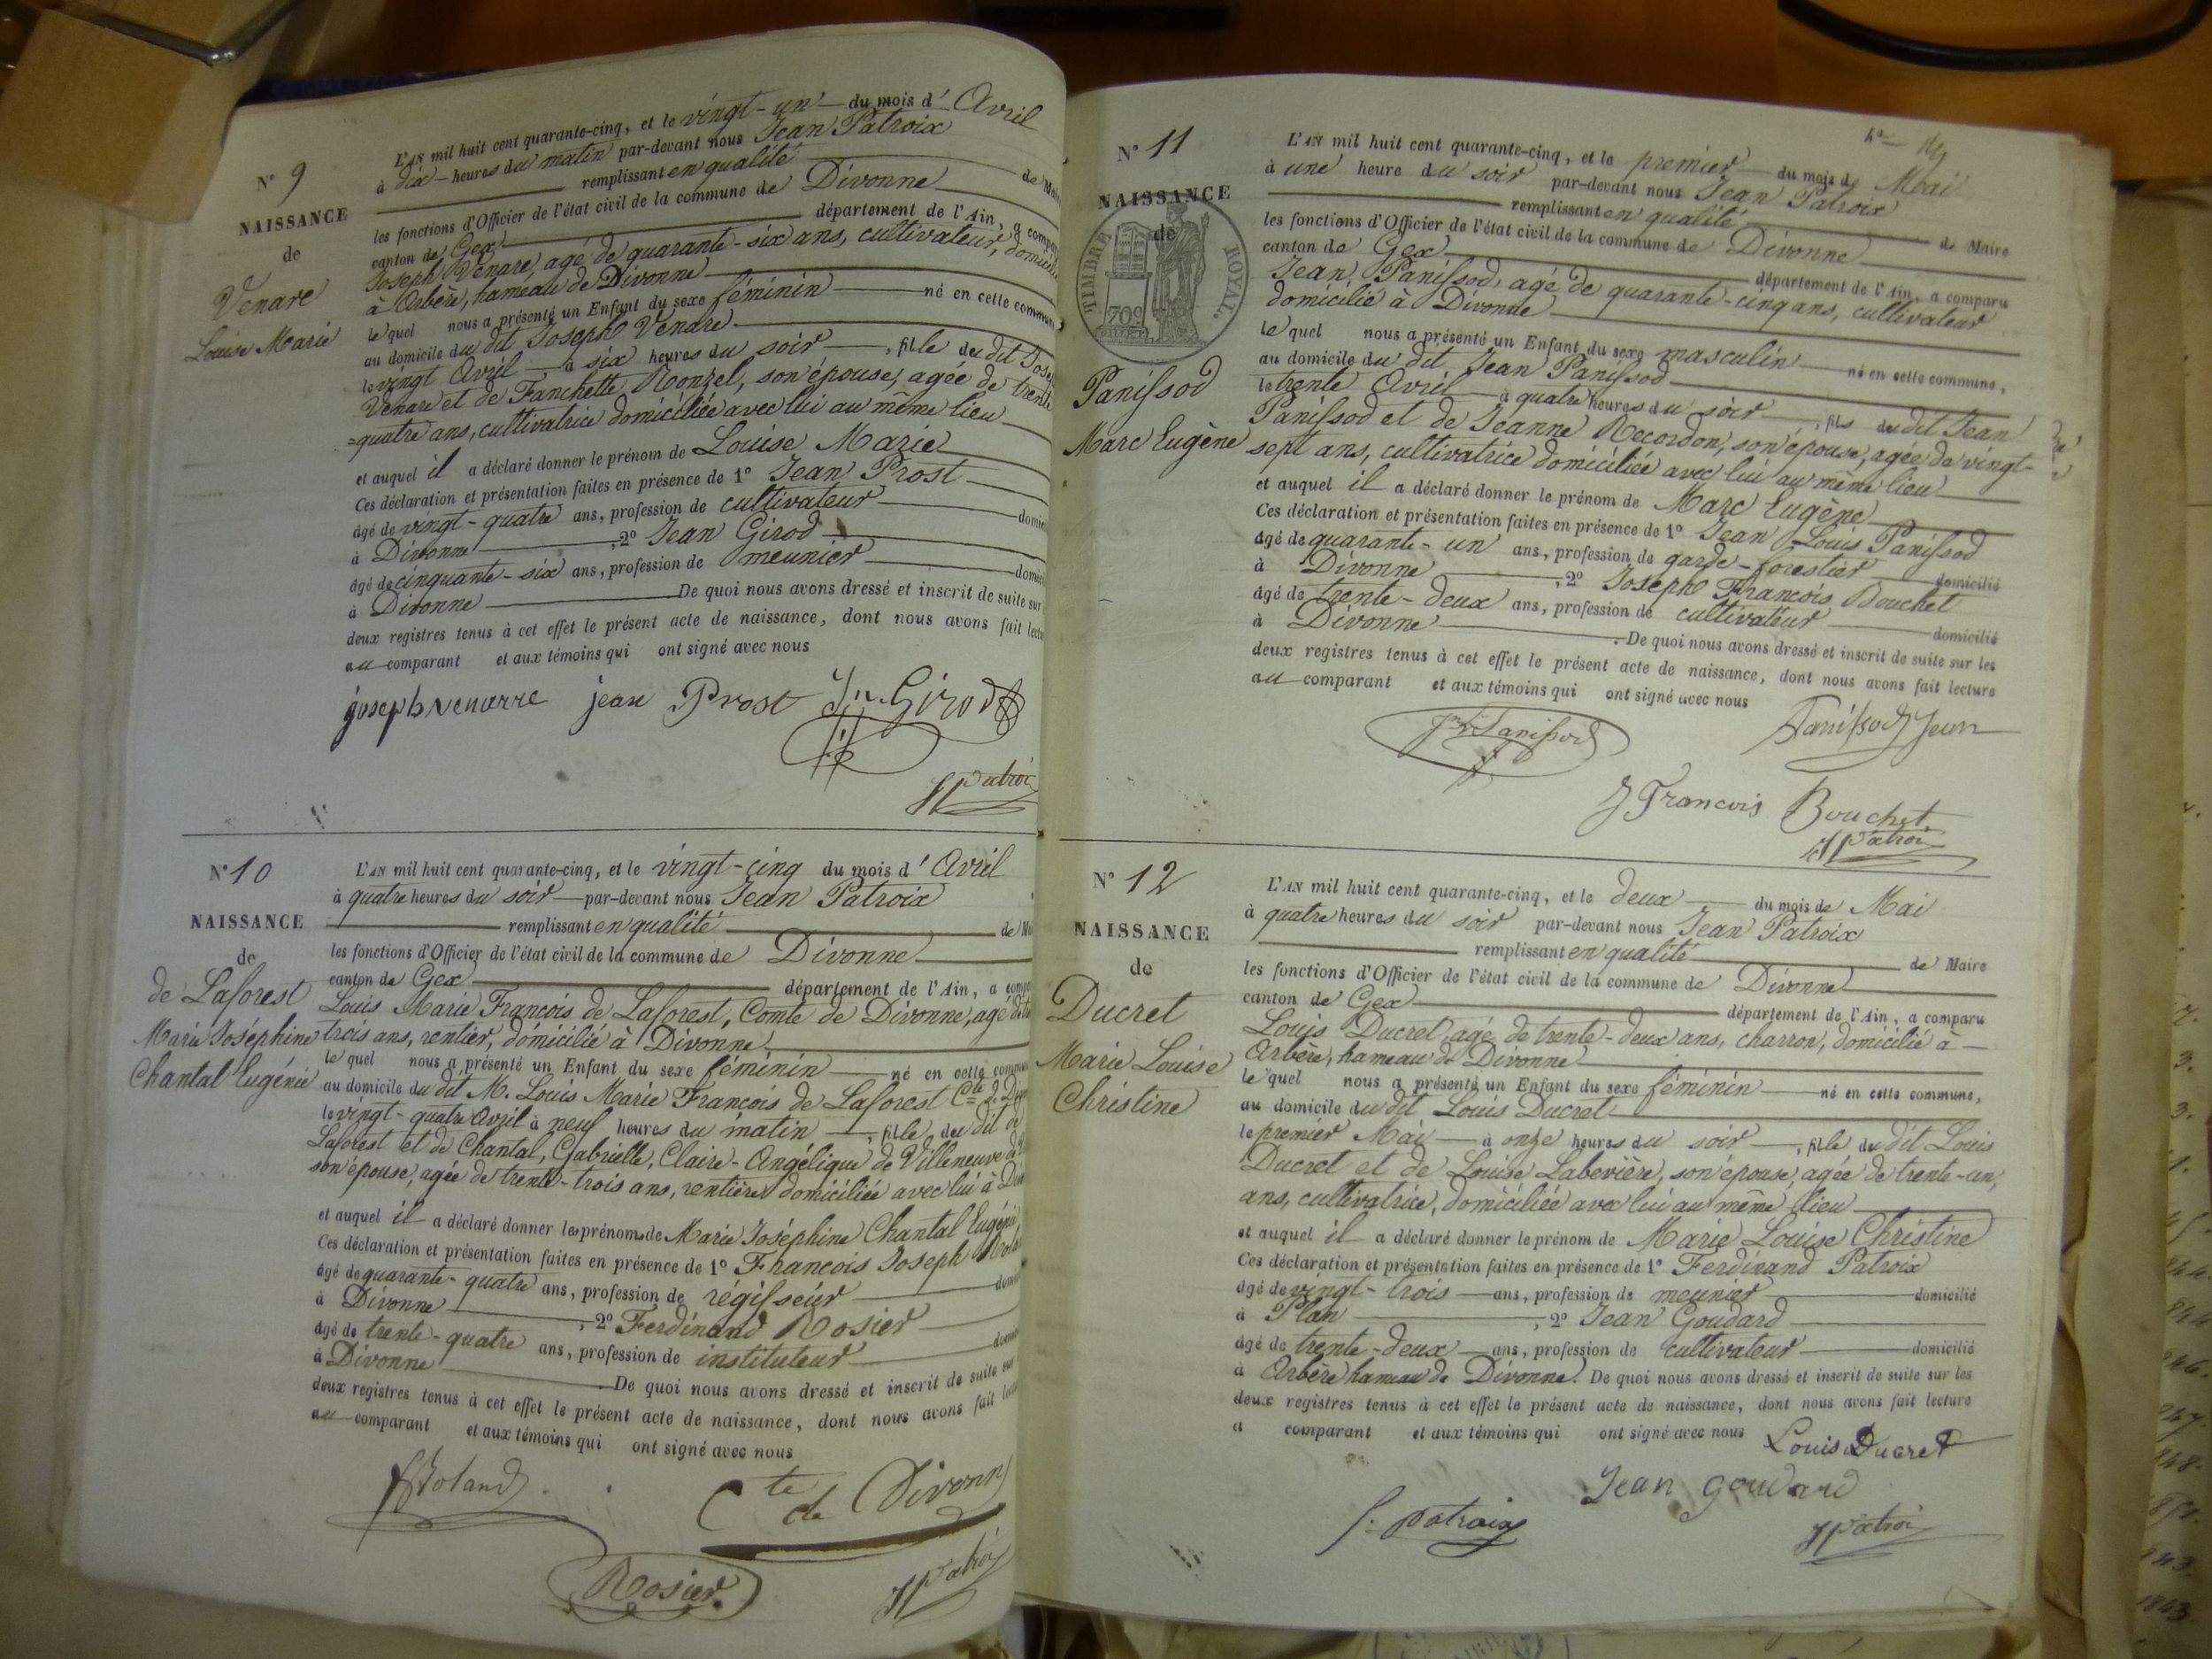 N° 9
NAISSANCE
de
Venare
Louise Marie
L'AN mil huit cent quarante-cinq, et le vingt-un du mois d'Avril
à dix heures du matin par-devant nous Jean Patroix
remplissant en qualité de Maire
les fonctions d'Officier de l'état civil de la commune de Divonne
canton de Gex département de l'Ain, a compa
Joseph Venare, agé de quarante-six ans, cultivateur, domicilié
à Arbère, hameau de Divonne
lequel nous a présenté un Enfant du sexe féminin né en cette commune
au domicile du dit Joseph Venare
le vingt Avril à six heures du soir, fille du dit Jose
Venare et de Fanchette Ronzel, son épouse, agée de trente
=quatre ans, cultivatrice domiciliée avec lui au même lieu
et auquel il a déclaré donner le prénom de Louise Marie
Ces déclaration et présentation faites en présence de 1° Jean Prost
âgé de vingt-quatre ans, profession de cultivateur domici
à Divonne, 2° Jean Girod
âgé de cinquante-six ans, profession de meunier domici
à Divonne De quoi nous avons dressé et inscrit de suite sur
deux registres tenus à cet effet le présent acte de naissance, dont nous avons fait lectu
au comparant et aux témoins qui ont signé avec nous
joseph venarre jean Prost Jn. Girod
JPatroix
N° 10
NAISSANCE
de
de Laforest
Marie Joséphine
Chantal Eugénie
L'AN mil huit cent quarante-cinq, et le vingt-cinq du mois d'Avril
à quatre heures du soir par-devant nous Jean Patroix
remplissant en qualité de Ma
les fonctions d'Officier de l'état civil de la commune de Divonne
canton de Gex département de l'Ain, a compa
Louis Marie François de Laforest, Comte de Divonne, agé de
trois ans, rentier, domicilié à Divonne
lequel nous a présenté un Enfant du sexe féminin né en cette commun
au domicile du dit M. Louis Marie François de Laforest Cte de
le vingt-quatre Avril à neuf heures du matin, fille du dit de
Laforest et de Chantal, Gabrielle, Claire-Angélique de Villeneuve
son épouse, agée de trente-trois ans, rentière domiciliée avec lui à Div
et auquel il a déclaré donner les prénoms de Marie Joséphine Chantal Eugénie,
Ces déclaration et présentation faites en présence de 1° François Joseph Rolan
âgé de quarante-quatre ans, profession de régisseur domici
à Divonne, 2° Ferdinand Rosier
âgé de trente-quatre ans, profession de instituteur domici
à Divonne De quoi nous avons dressé et inscrit de suite sur
deux registres tenus à cet effet le présent acte de naissance, dont nous avons fait lectu
au comparant et aux témoins qui ont signé avec nous
Roland
Cte de Divonn
Rosier JPatroix
N° 11
NAISSANCE
de
TIMBRE ROYAL.
70c
Panissod
Marc Eugène
L'AN mil huit cent quarante-cinq, et le premier du mois de Mai
à une heure du soir par-devant nous Jean Patroix
remplissant en qualité de Maire
les fonctions d'Officier de l'état civil de la commune de Divonne
canton de Gex département de l'Ain, a comparu
Jean Panissod, agé de quarante-cinq ans, cultivateur
domicilié à Divonne
lequel nous a présenté un Enfant du sexe masculin né en cette commune,
au domicile du dit Jean Panissod
le trente Avril à quatre heures du soir, fils du dit Jean
Panissod et de Jeanne Recordon, son épouse, agée de vingt-
sept ans, cultivatrice domiciliée avec lui au même lieu
et auquel il a déclaré donner le prénom de Marc Eugène
Ces déclaration et présentation faites en présence de 1° Jean Louis Panissod
âgé de quarante-un ans, profession de garde-forestier domicilié
à Divonne, 2° Joseph François Bouchet
âgé de trente-deux ans, profession de cultivateur domicilié
à Divonne. De quoi nous avons dressé et inscrit de suite sur les
deux registres tenus à cet effet le présent acte de naissance, dont nous avons fait lecture
au comparant et aux témoins qui ont signé avec nous
Jn Ls Panissod Panissod Jean
J François Bouchet
JPatroix
N° 12
NAISSANCE
de
Ducret
Marie Louise
Christine
L'AN mil huit cent quarante-cinq, et le deux du mois de Mai
à quatre heures du soir par-devant nous Jean Patroix
remplissant en qualité de Maire
les fonctions d'Officier de l'état civil de la commune de Divonne
canton de Gex département de l'Ain, a comparu
Louis Ducret, agé de trente-deux ans, charron, domicilié à
Arbère, hameau de Divonne
lequel nous a présenté un Enfant du sexe féminin né en cette commune,
au domicile du dit Louis Ducret
le premier Mai à onze heures du soir, fille du dit Louis
Ducret et de Louise Labevière, son épouse, agée de trente-un
ans, cultivatrice, domiciliée avec lui au même lieu
et auquel il a déclaré donner le prénom de Marie Louise Christine
Ces déclaration et présentation faites en présence de 1° Ferdinand Patroix
âgé de vingt-trois ans, profession de meunier domicilié
à Plan, 2° Jean Goudard
âgé de trente-deux ans, profession de cultivateur domicilié
à Arbère hameau de Divonne. De quoi nous avons dressé et inscrit de suite sur les
deux registres tenus à cet effet le présent acte de naissance, dont nous avons fait lecture
a comparant et aux témoins qui ont signé avec nous Louis Ducret
Jean Goudard
f. patroix JPatroix